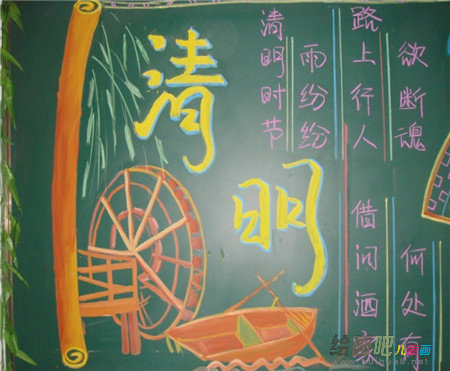 清明
清明时节
雨纷纷
路上行人
欲断魂
借问酒家
何处有
绘画吧